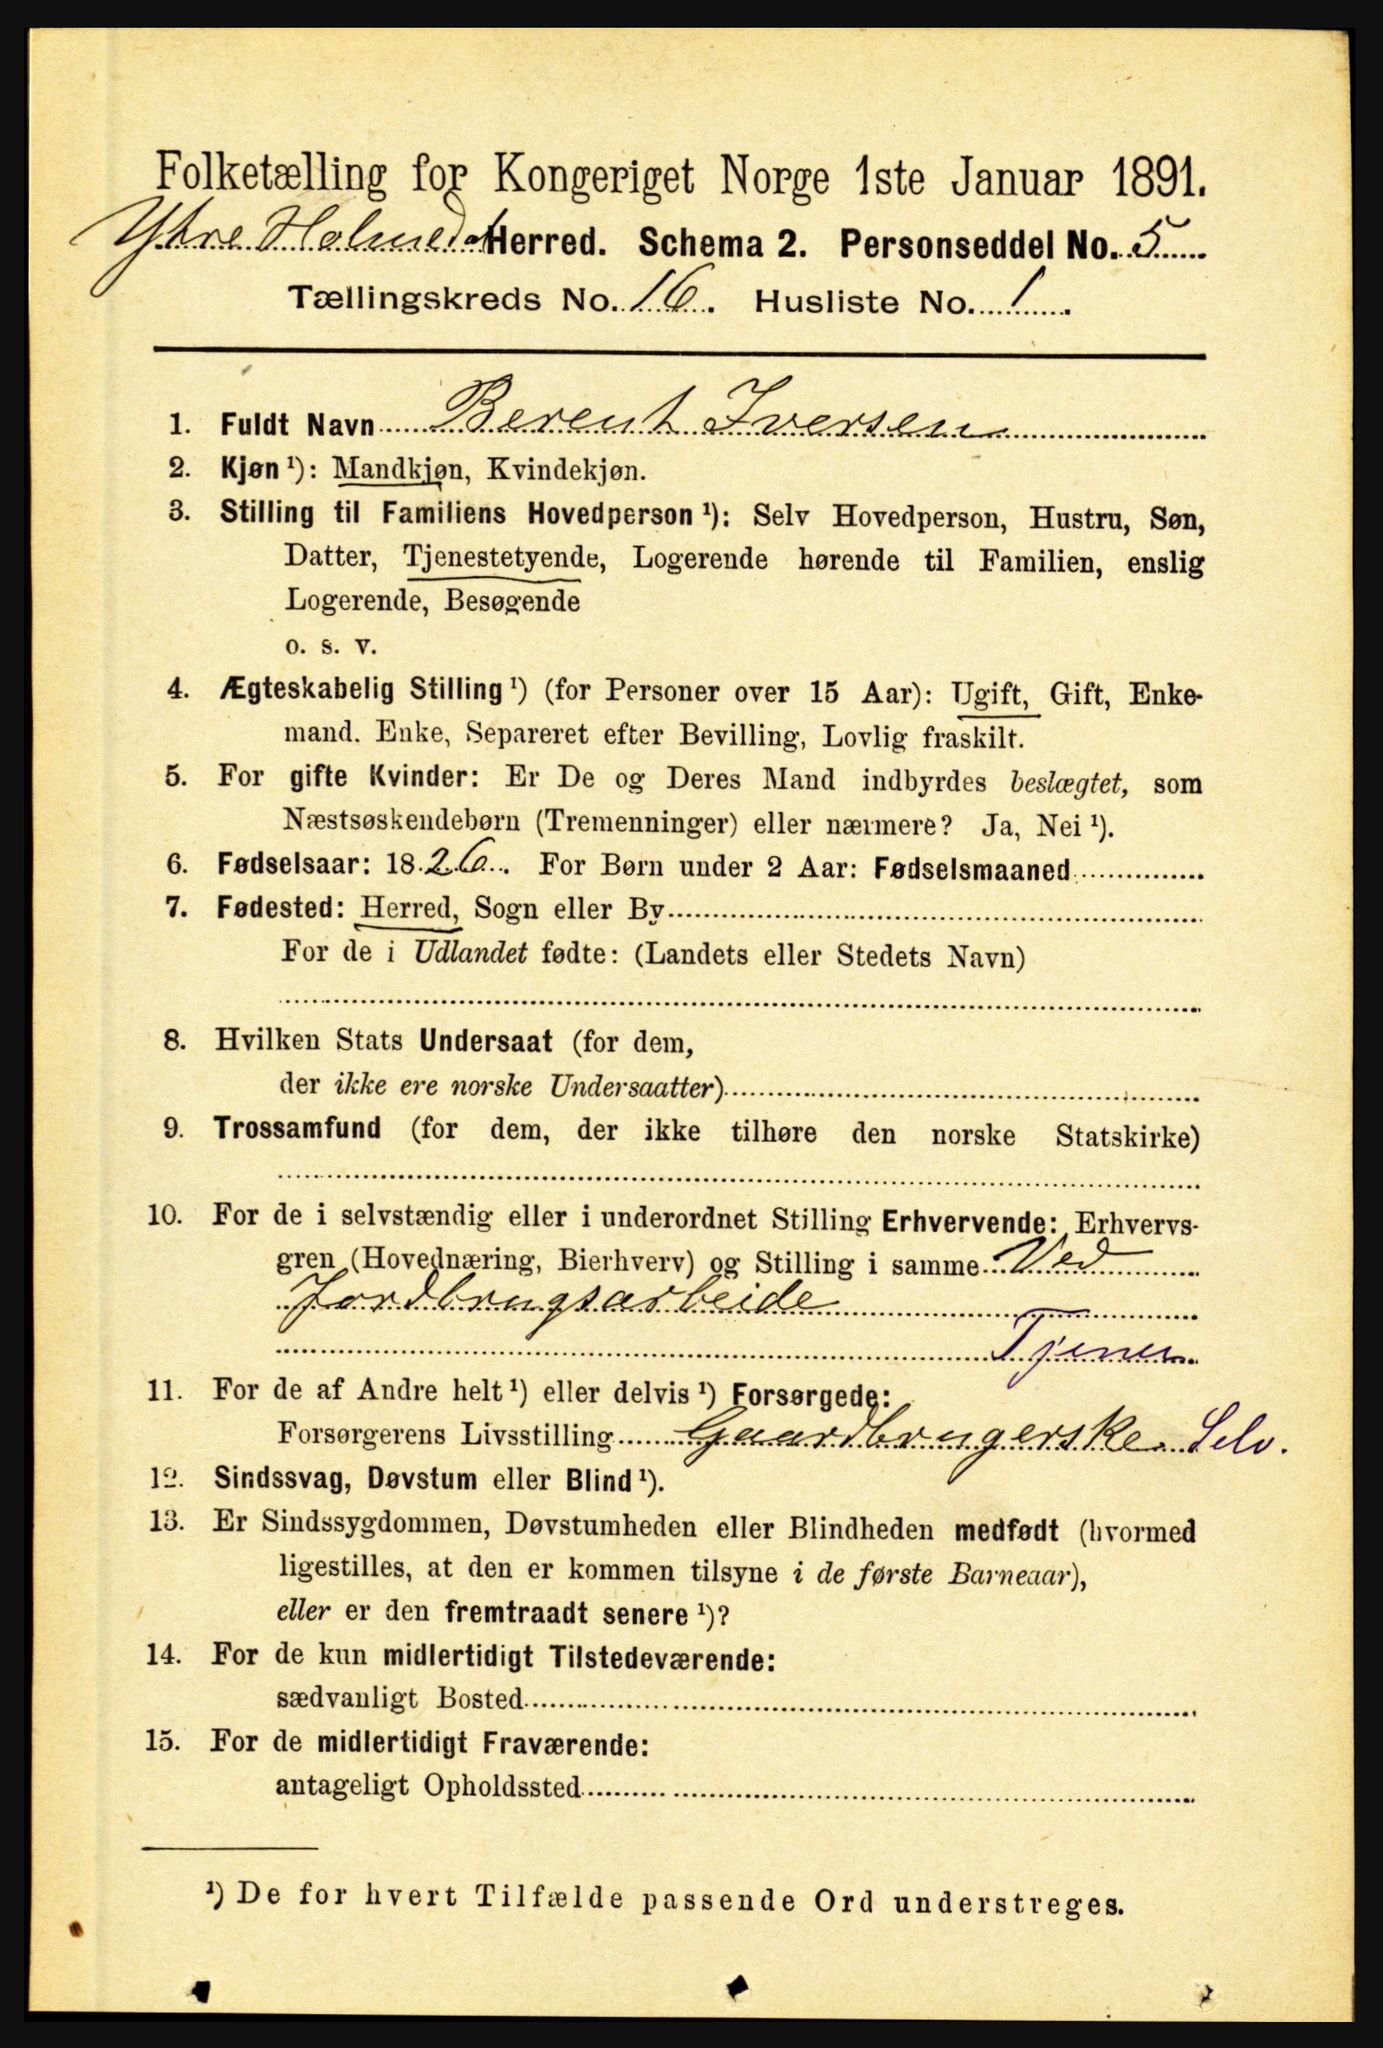 Folketælling for Kongeriget Norge 1ste Januar 1891.
Ytre Holmedal Herred. Schema 2. Personseddel No. 5
Tællingskreds No. 16. Husliste No. 1.
1. Fuldt Navn Berent Iversen
2. Kjøn ¹): Mandkjøn, Kvindekjøn.
3. Stilling til Familiens Hovedperson ¹): Selv Hovedperson, Hustru, Søn,
Datter, Tjenestetyende, Logerende hørende til Familien, enslig
Logerende, Besøgende
o. s. v.
4. Ægteskabelig Stilling ¹) (for Personer over 15 Aar): Ugift, Gift, Enke-
mand. Enke, Separeret efter Bevilling, Lovlig fraskilt.
5. For gifte Kvinder: Er De og Deres Mand indbyrdes beslægtet, som
Næstsøskendebørn (Tremenninger) eller nærmere? Ja, Nei ¹).
6. Fødselsaar: 1826. For Børn under 2 Aar: Fødselsmaaned
7. Fødested: Herred, Sogn eller By
For de i Udlandet fødte: (Landets eller Stedets Navn)
8. Hvilken Stats Undersaat (for dem,
der ikke ere norske Undersaatter)
9. Trossamfund (for dem, der ikke tilhøre den norske Statskirke)
10. For de i selvstændig eller i underordnet Stilling Erhvervende: Erhvervs-
gren (Hovednæring, Bierhverv) og Stilling i samme Ved
Jordbrugsarbeide
Tjener
11. For de af Andre helt ¹) eller delvis ¹) Forsørgede:
Forsørgerens Livsstilling Gaardbrugerske. Selv.
12. Sindssvag, Døvstum eller Blind ¹).
13. Er Sindssygdommen, Døvstumheden eller Blindheden medfødt (hvormed
ligestilles, at den er kommen tilsyne i de første Barneaar),
eller er den fremtraadt senere ¹)?
14. For de kun midlertidigt Tilstedeværende:
sædvanligt Bosted
15. For de midlertidigt Fraværende:
antageligt Opholdssted
¹) De for hvert Tilfælde passende Ord understreges.